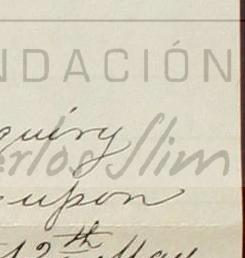 NDACIÓN
quiry
Carlos Slim
upon
12th May